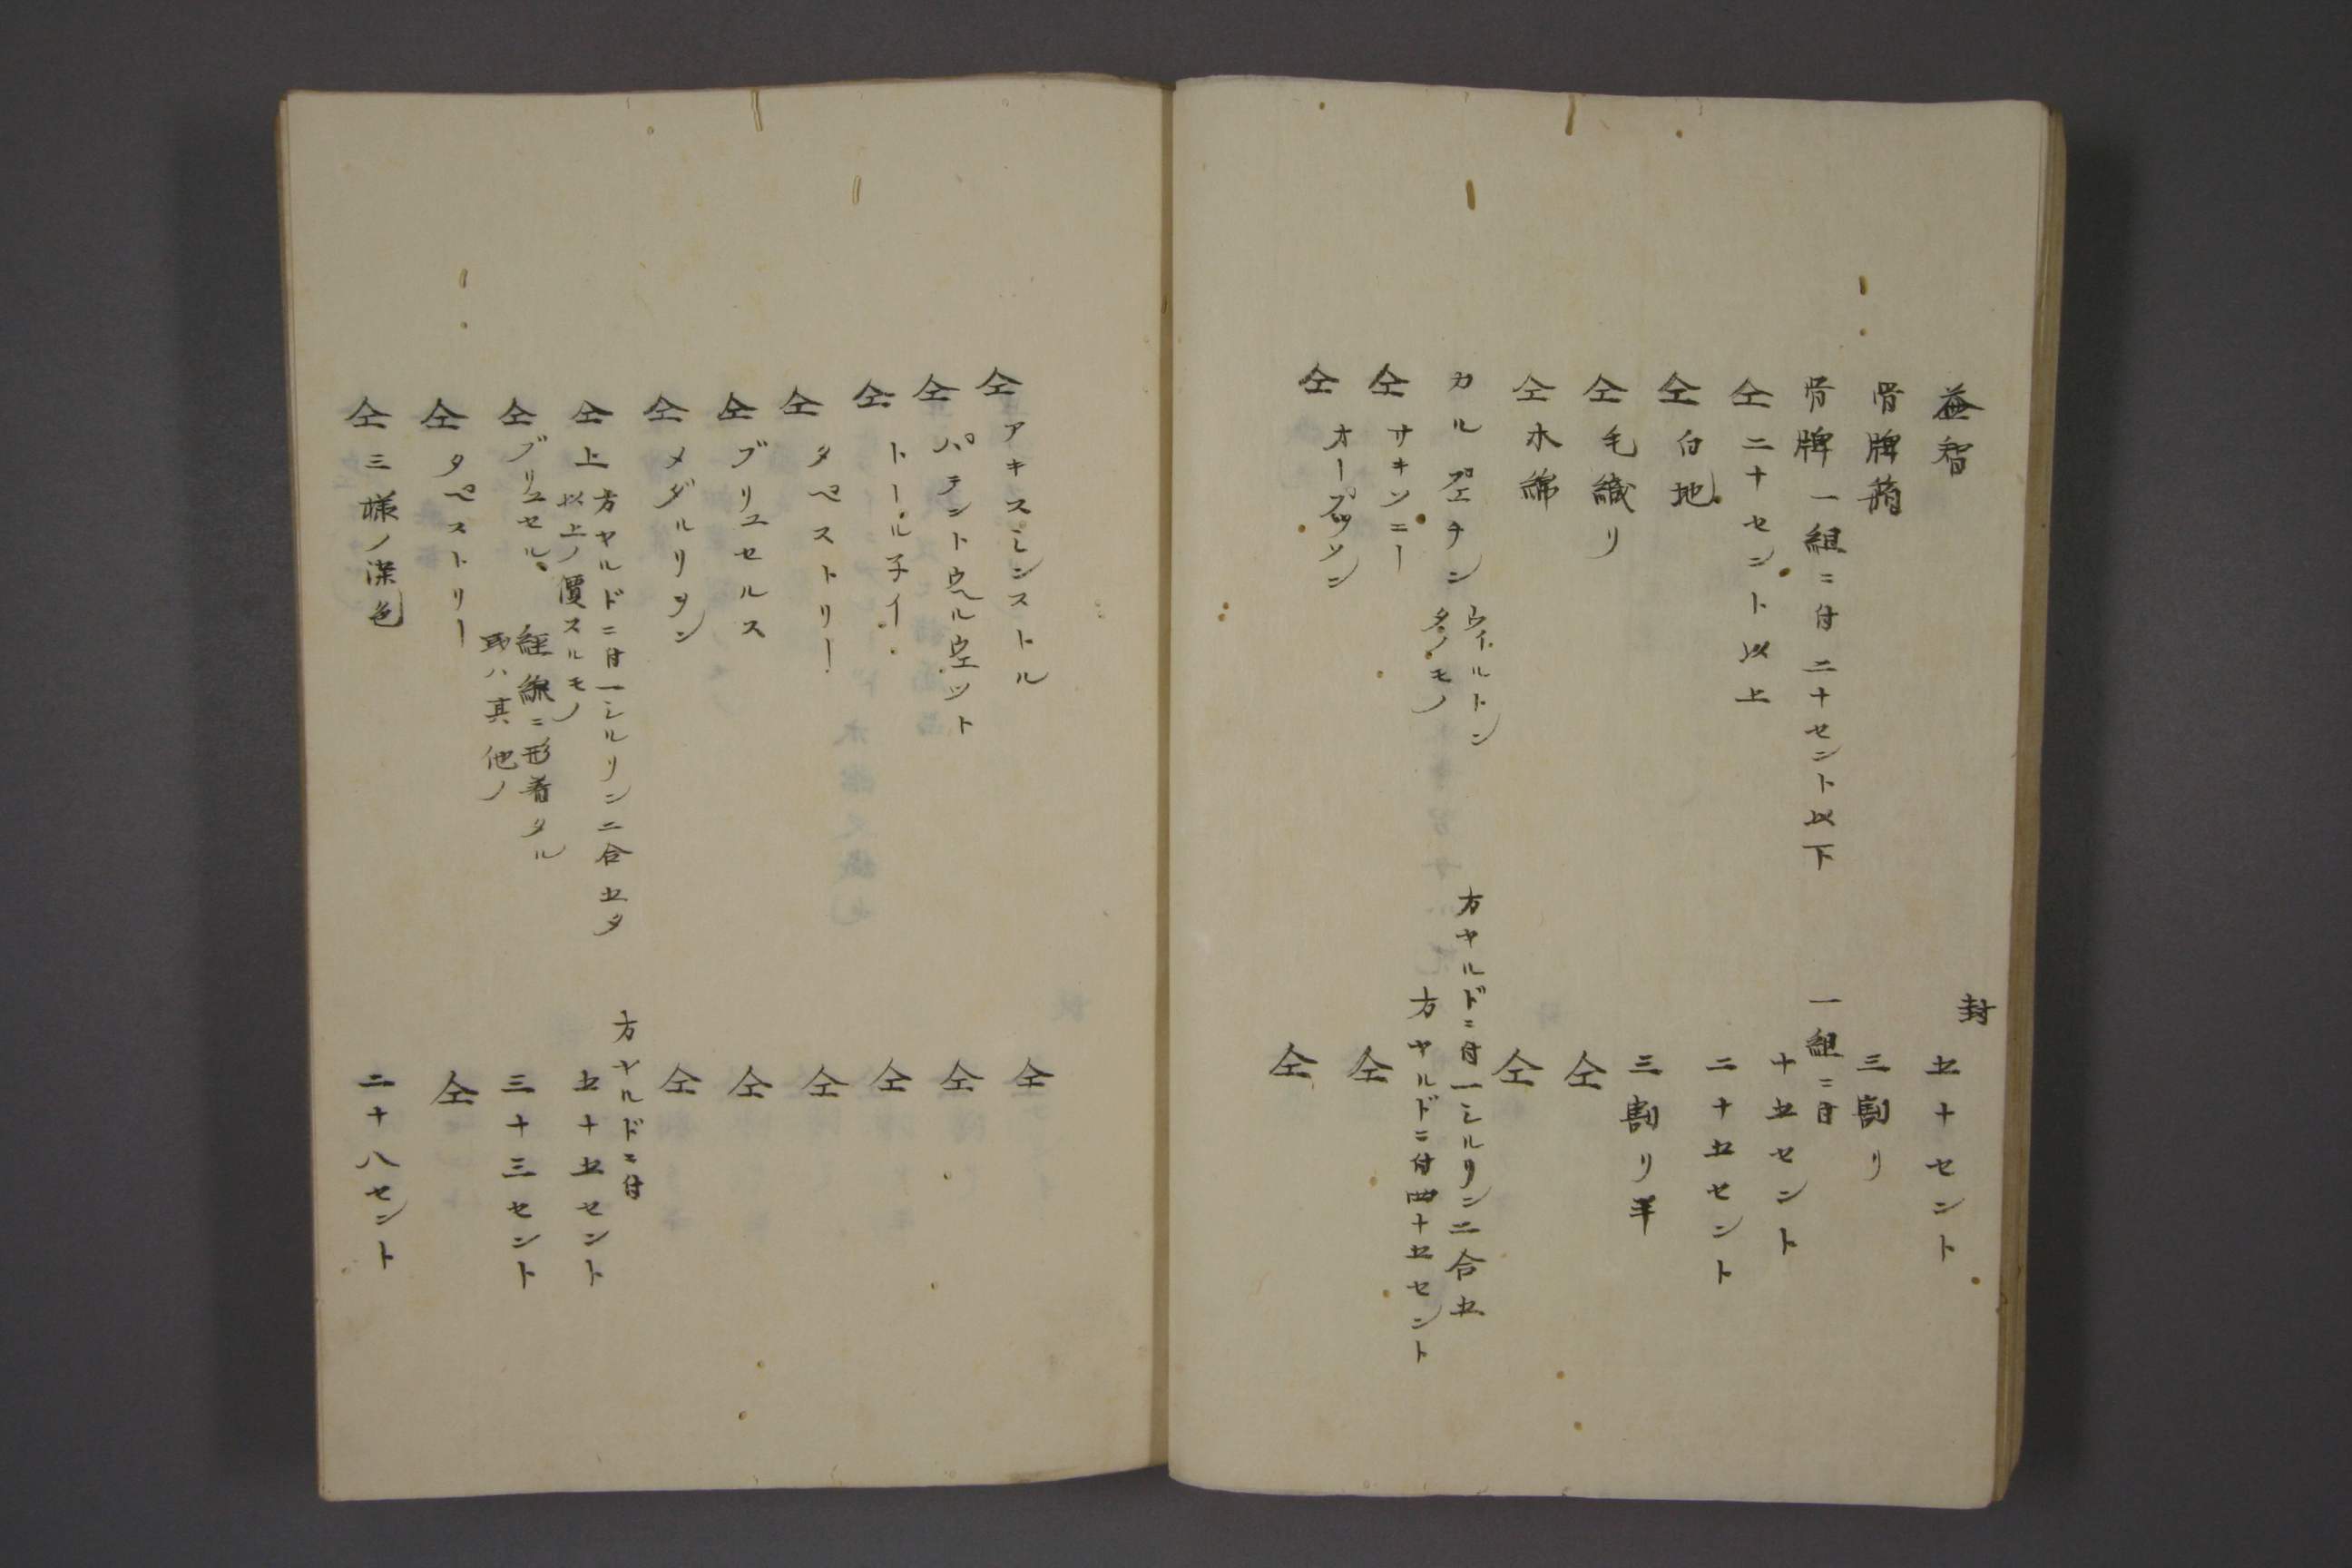 益智 封 五十セント
骨牌箱 三割リ
骨牌一組ニ付二十セント以下 一組ニ付 十五セント
仝二十セント以上 二十五セント
仝白地 三割リ半
仝毛織リ 仝
仝木綿 仝
カルプェチン ウイルトン タノモノ 方ヤルドニ付一シルリンニ合五 方ヤルドニ付四十五セント
仝サキソニー 仝
仝オープッソン 仝
仝アキスミンストル 仝
仝パテントウヘルウエット 仝
仝トール子イー 仝
仝タペストリー 仝
仝ブリユセルス 仝
仝メダルリヲン 仝
仝上 方ヤルドニ付一シルリンニ合五タ 以上ノ價スルモノ 方ヤルドニ付 五十五セント
仝ブリユセル 經線ニ形着タル 或ハ其他ノ 三十三セント
仝タペストリー 仝
仝三様ノ深色 二十八セント